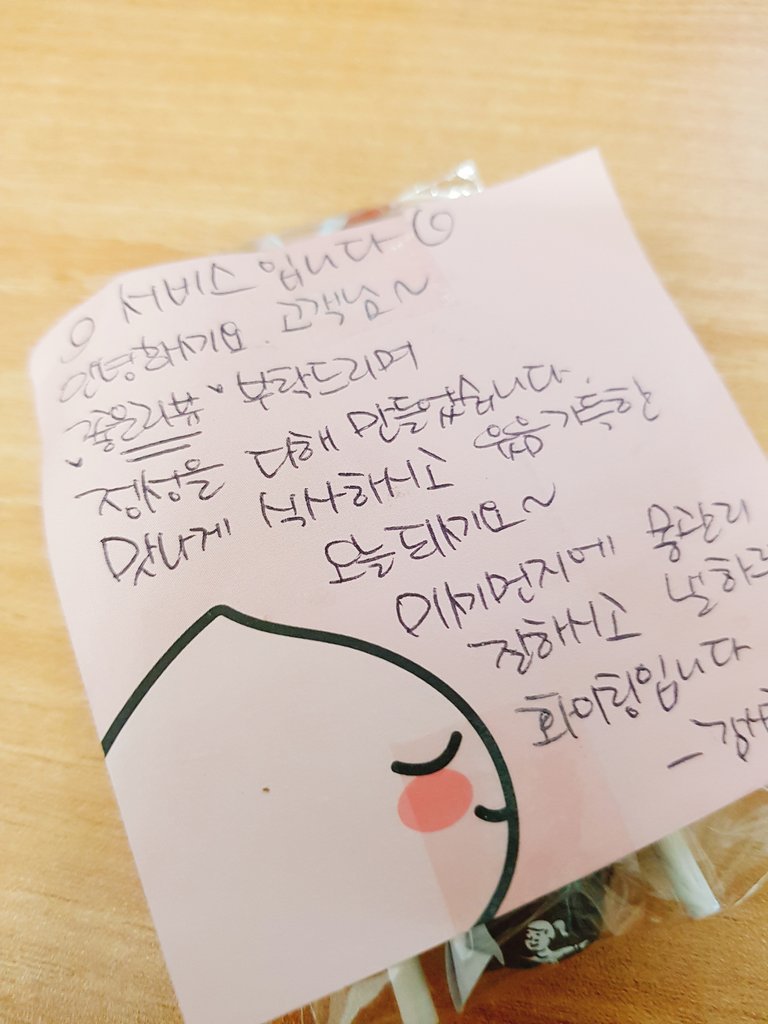 서비스입니다
안녕하세요. 고객님~
"좋은리뷰" 부탁드리며
정성을 다해 만들었습니다.
맛나게 식사하시고 웃음가득한
오늘 되세요~
미세먼지에 몸관리
잘하시고
화이팅입니다